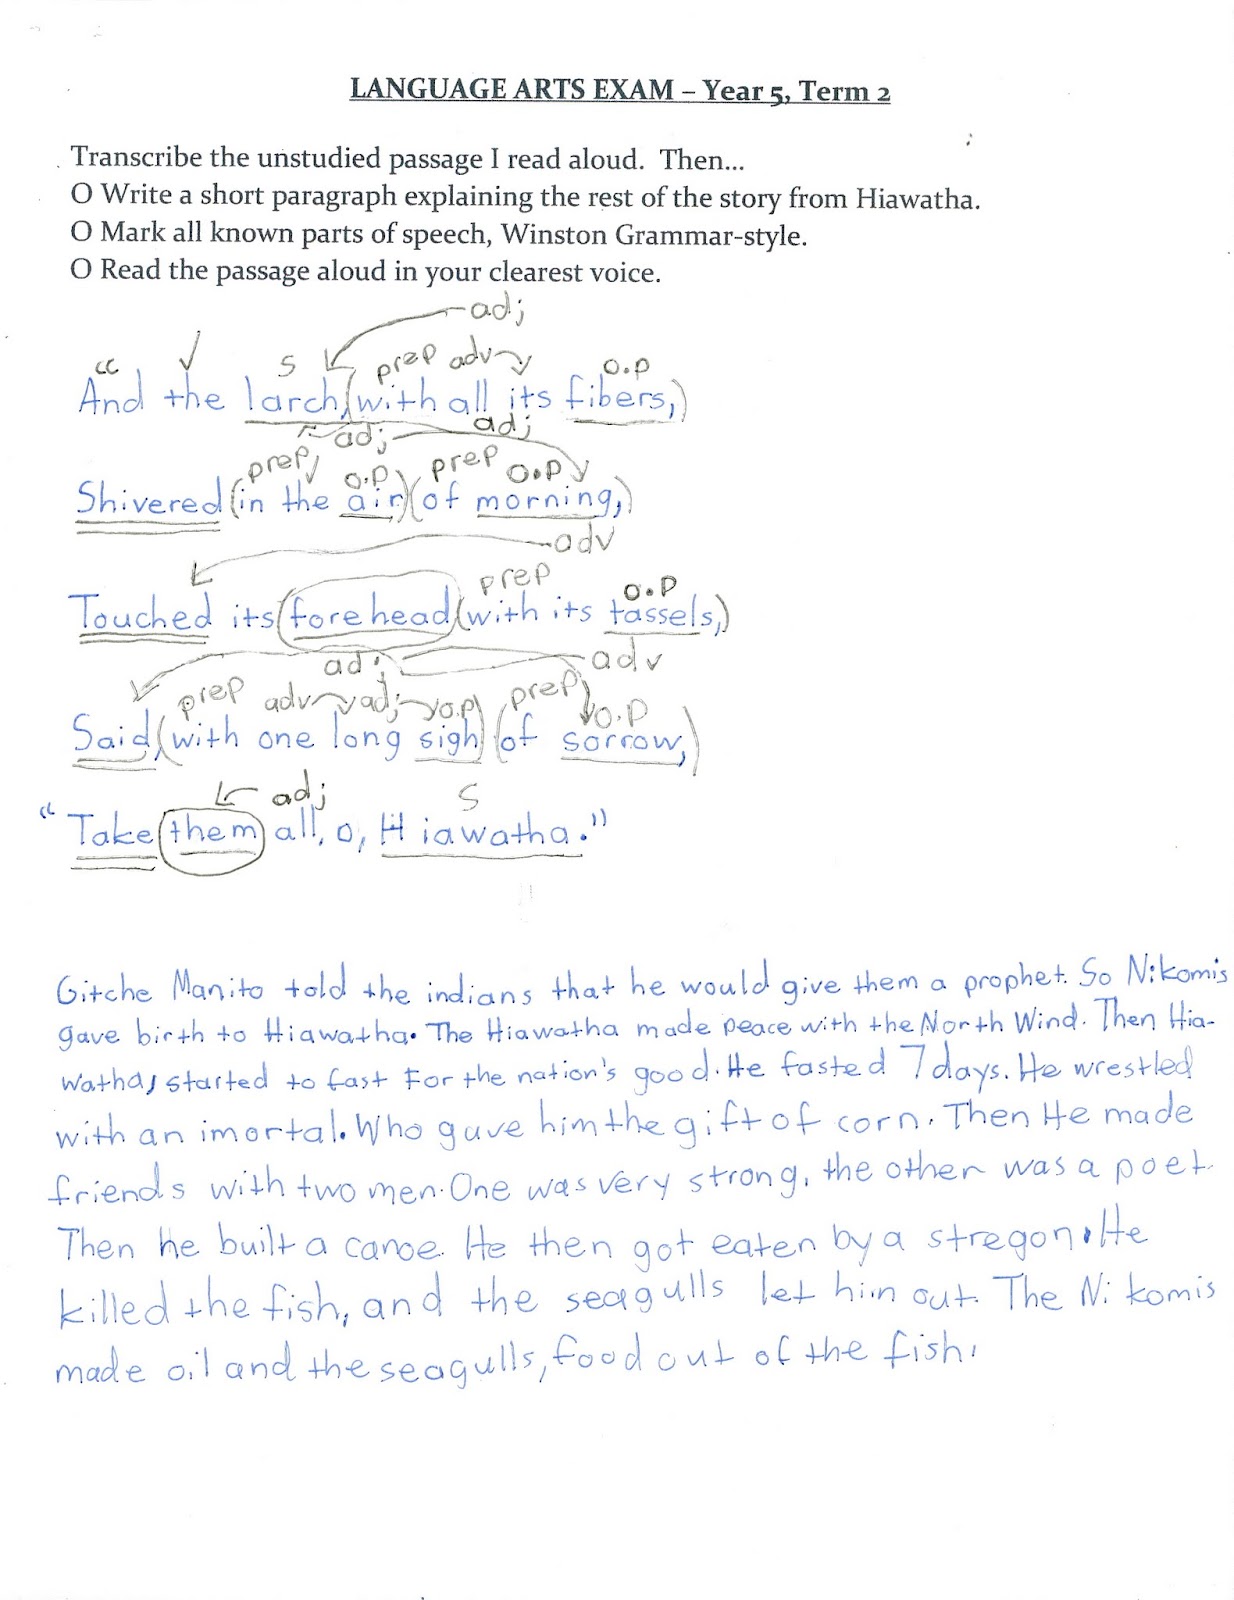 LANGUAGE ARTS EXAM – Year 5, Term 2
Transcribe the unstudied passage I read aloud. Then...
O Write a short paragraph explaining the rest of the story from Hiawatha.
O Mark all known parts of speech, Winston Grammar-style.
O Read the passage aloud in your clearest voice.
adj
cc ✓ S prep adv o.p
And the larch, (with all its fibers,)
adj adj
prep o.p prep o.p
Shivered (in the air) (of morning,)
adv
prep o.p
Touched its (forehead) (with its tassels,)
adj adv
prep adv adj o.p prep o.p
Said, (with one long sigh) (of sorrow,)
adj S
"Take (them) all, o, Hiawatha."
Gitche Manito told the indians that he would give them a prophet. So Nikomis
gave birth to Hiawatha. The Hiawatha made peace with the North Wind. Then Hia-
watha, started to fast For the nation's good. He fasted 7 days. He wrestled
with an imortal. Who gave him the gift of corn. Then He made
friends with two men. One was very strong, the other was a poet.
Then he built a canoe. He then got eaten by a stregon. He
killed the fish, and the seagulls let him out. The Nikomis
made oil and the seagulls, food out of the fish.